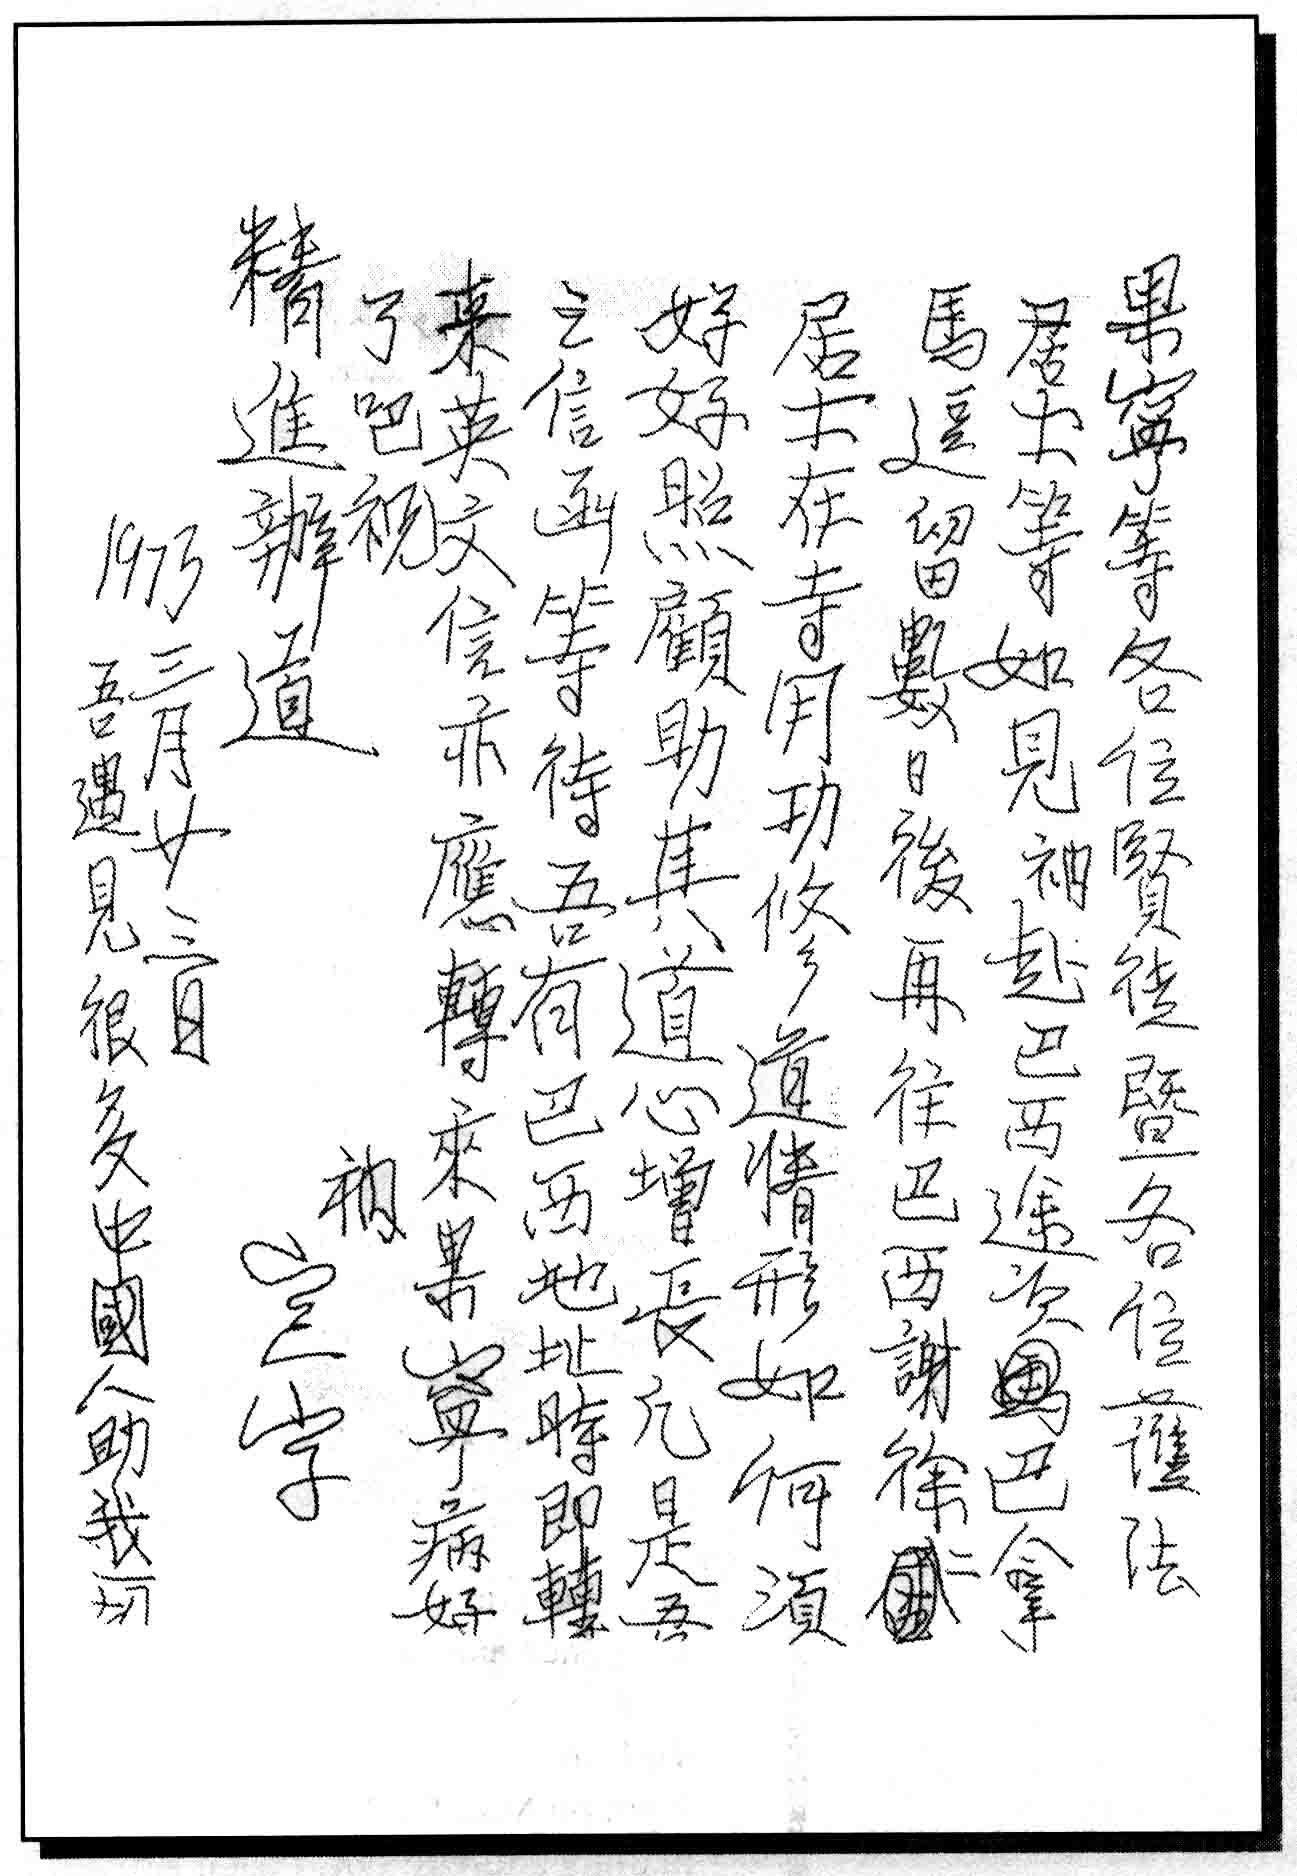 果寧等各位賢徒暨各位護法
居士等如見衲赴巴西途次巴拿
馬逗留數日後再往巴西謝徐二
居士在寺用功修道情形如何須
好好照顧助其道心增長凡是吾
之信函等待吾有巴西地址時即轉
來英文信亦應轉來果寧病好
了吧祝
精進辦道
衲
宣化字
1973三月廿三日
吾遇見很多中國人助我一切